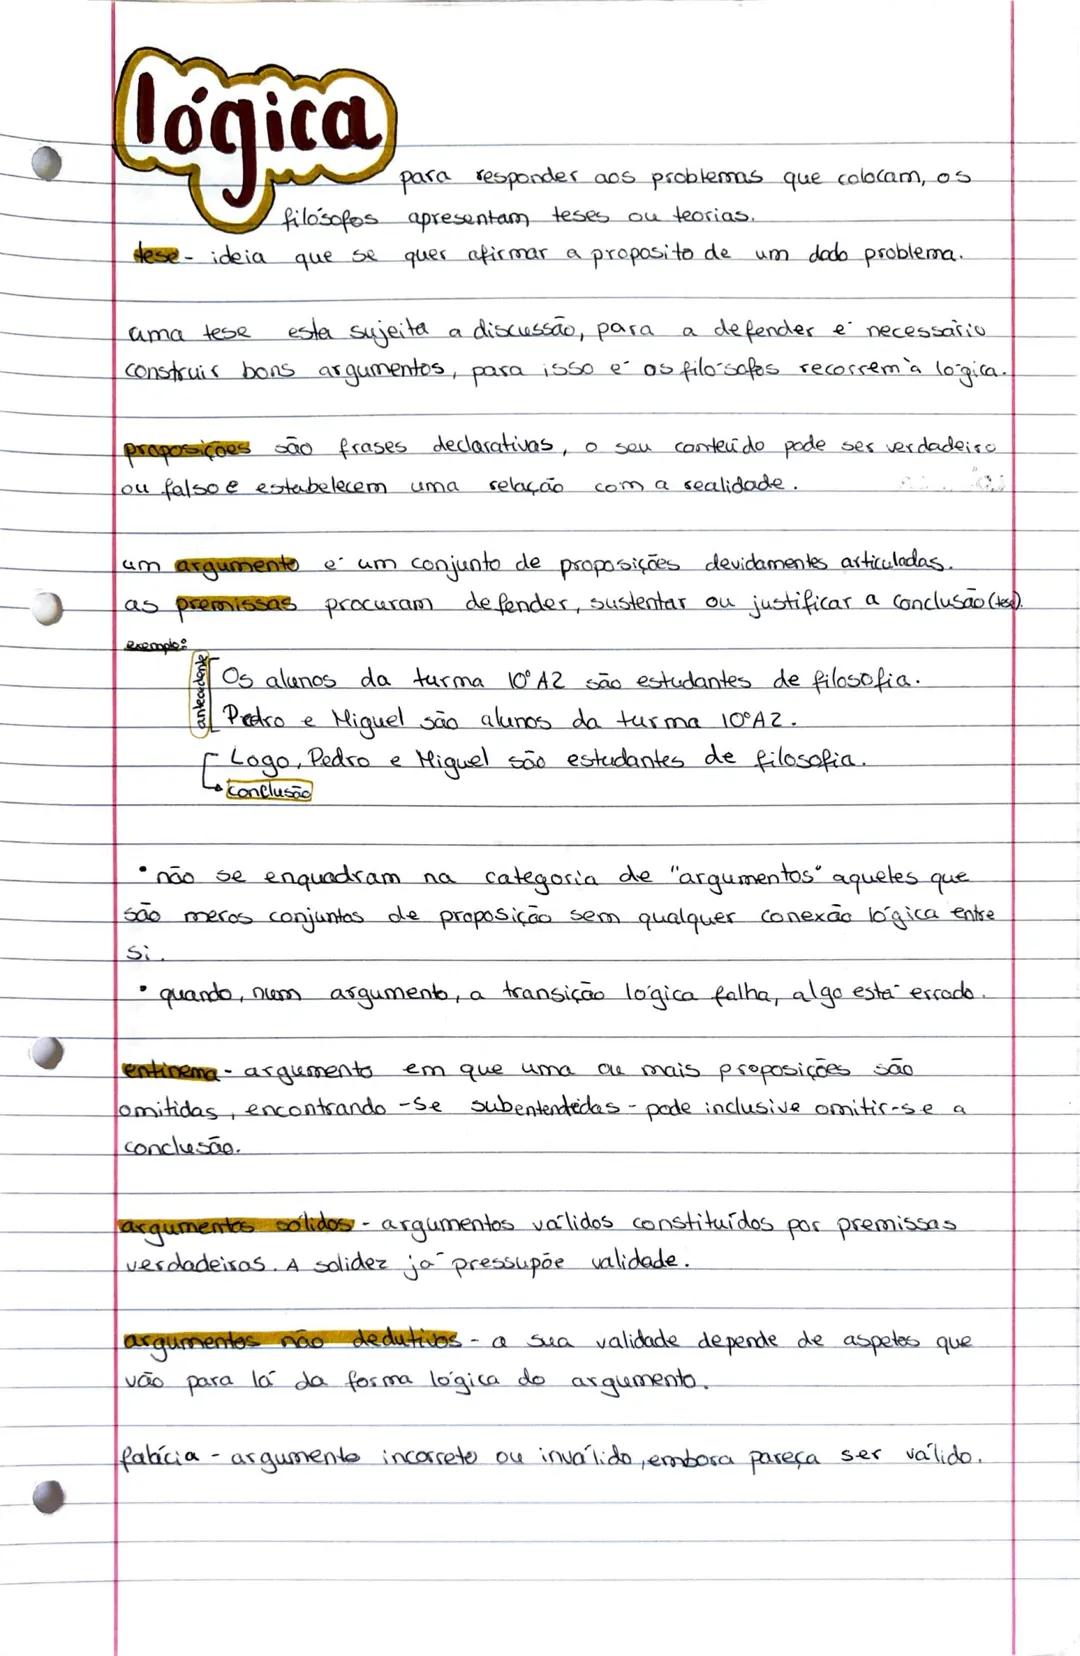 lógica
para responder aos problemas que colocam, os
filósofos apresentam teses ou teorias.
tese - ideia que se quer afirmar a proposito de um dado problema.
uma tese esta sujeita a discussão, para a defender é necessário
construir bons argumentos, para isso é os filósofos recorrem à lógica.
proposições são frases declarativas, o seu conteúdo pode ser verdadeiro
ou falso e estabelecem uma relação com a realidade.
um argumento é um conjunto de proposições devidamentes articuladas.
as premissas procuram defender, sustentar ou justificar a conclusão (tese).
exemplo:
antecedente
Os alunos da turma 10º A2 são estudantes de filosofia.
Pedro e Miguel são alunos da turma 10º A2.
Logo, Pedro e Miguel são estudantes de filosofia.
conclusão
• não se enquadram na categoria de "argumentos" aqueles que
são meros conjuntos de proposição sem qualquer conexão lógica entre
si.
• quando, num argumento, a transição lógica falha, algo está errado.
entinema - argumento em que uma ou mais proposições são
omitidas, encontrando-se subentendidas - pode inclusive omitir-se a
conclusão.
argumentos sólidos - argumentos válidos constituídos por premissas
verdadeiras. A solidez já pressupõe validade.
argumentos não dedutivos - a sua validade depende de aspetos que
vão para lá da forma lógica do argumento.
falácia - argumento incorreto ou inválido, embora pareça ser válido.